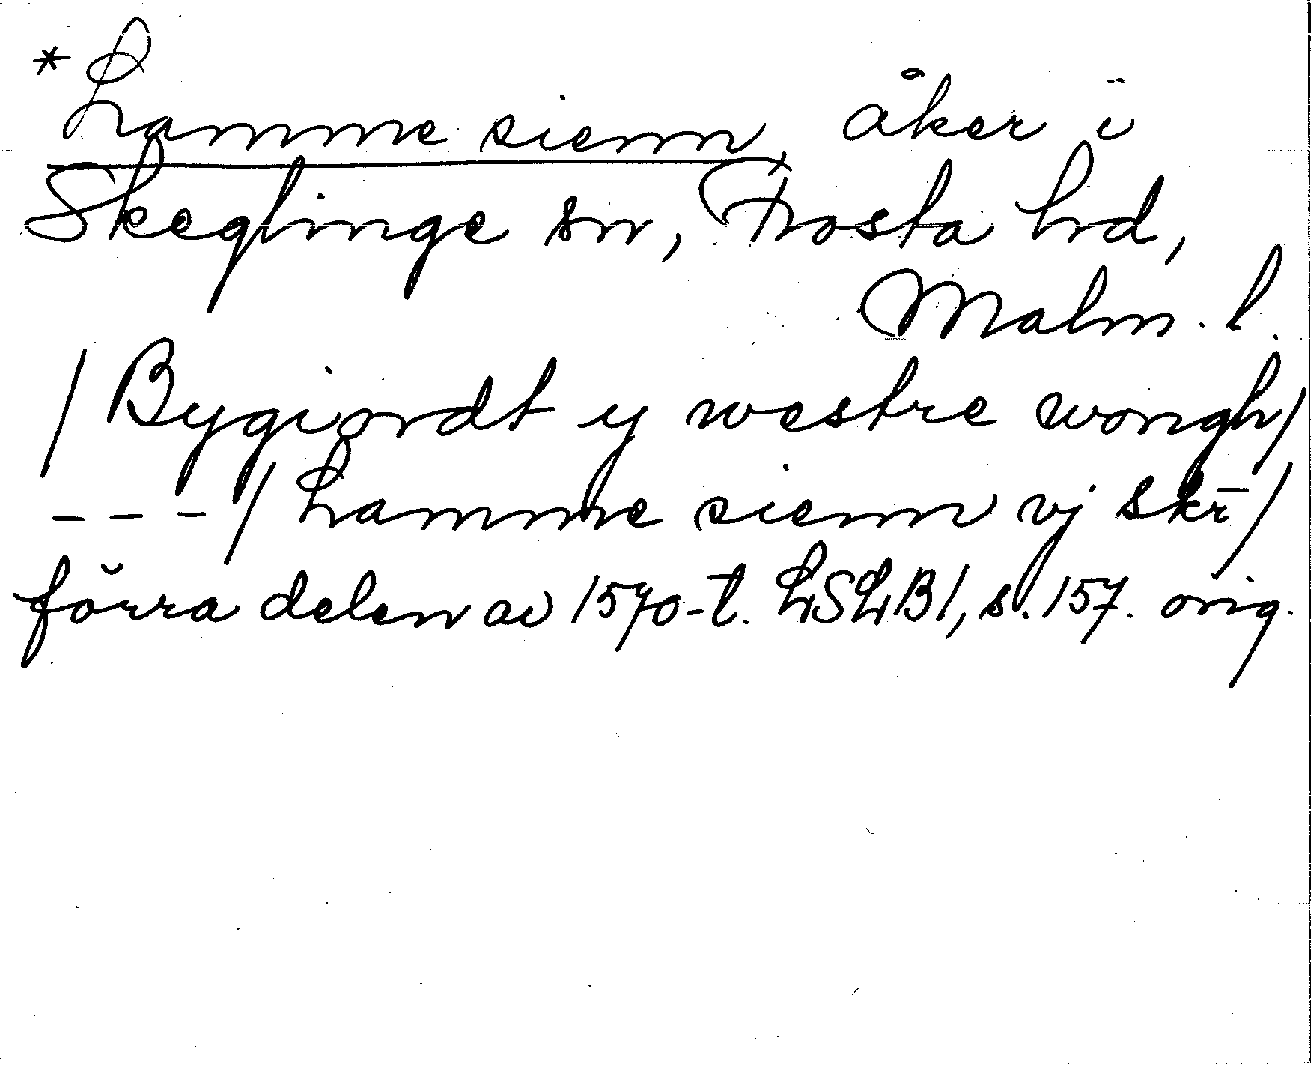 *Lamme sienn, åker i
Skeglinge sn, Frosta hd,
Malm. l.
/ Bygiordt y westre wongh/
- - - / Lamme sienn vj skr̄ /
förra delen av 1570-t. LSLB1, s. 157. orig.